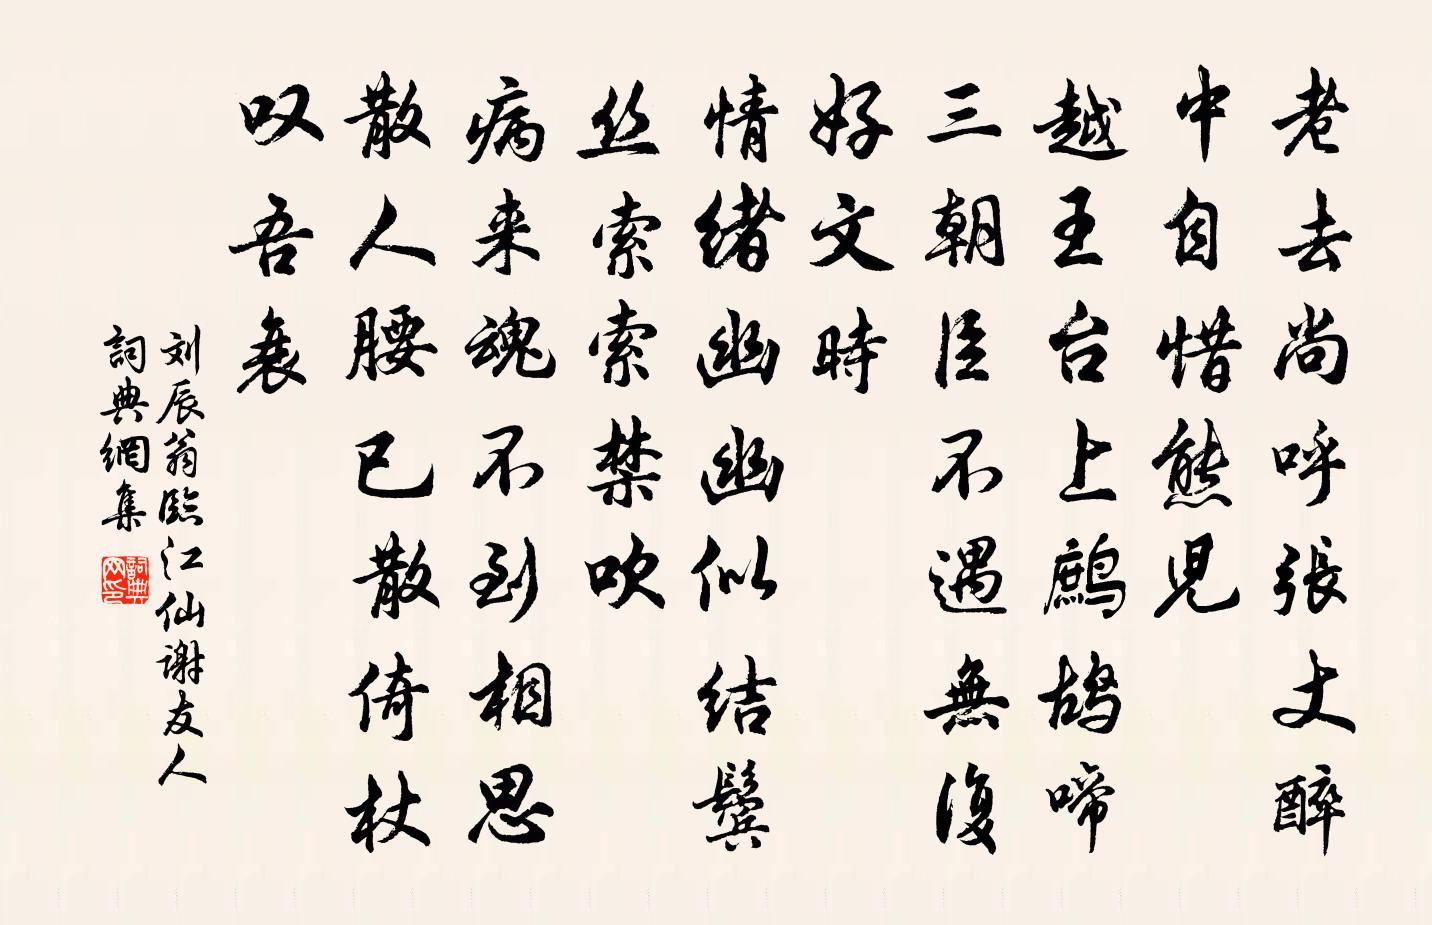 老去尚呼張丈醉
中自惜熊児
越王台上鷓鸪啼
三朝臣不遇無復
好文時
情绪幽幽似结鬓
丝索索禁吹
病来魂不到相思
散人腰已散倚杖
叹吾衰
刘辰翁臨江仙谢友人
詞典網集
詞典网印